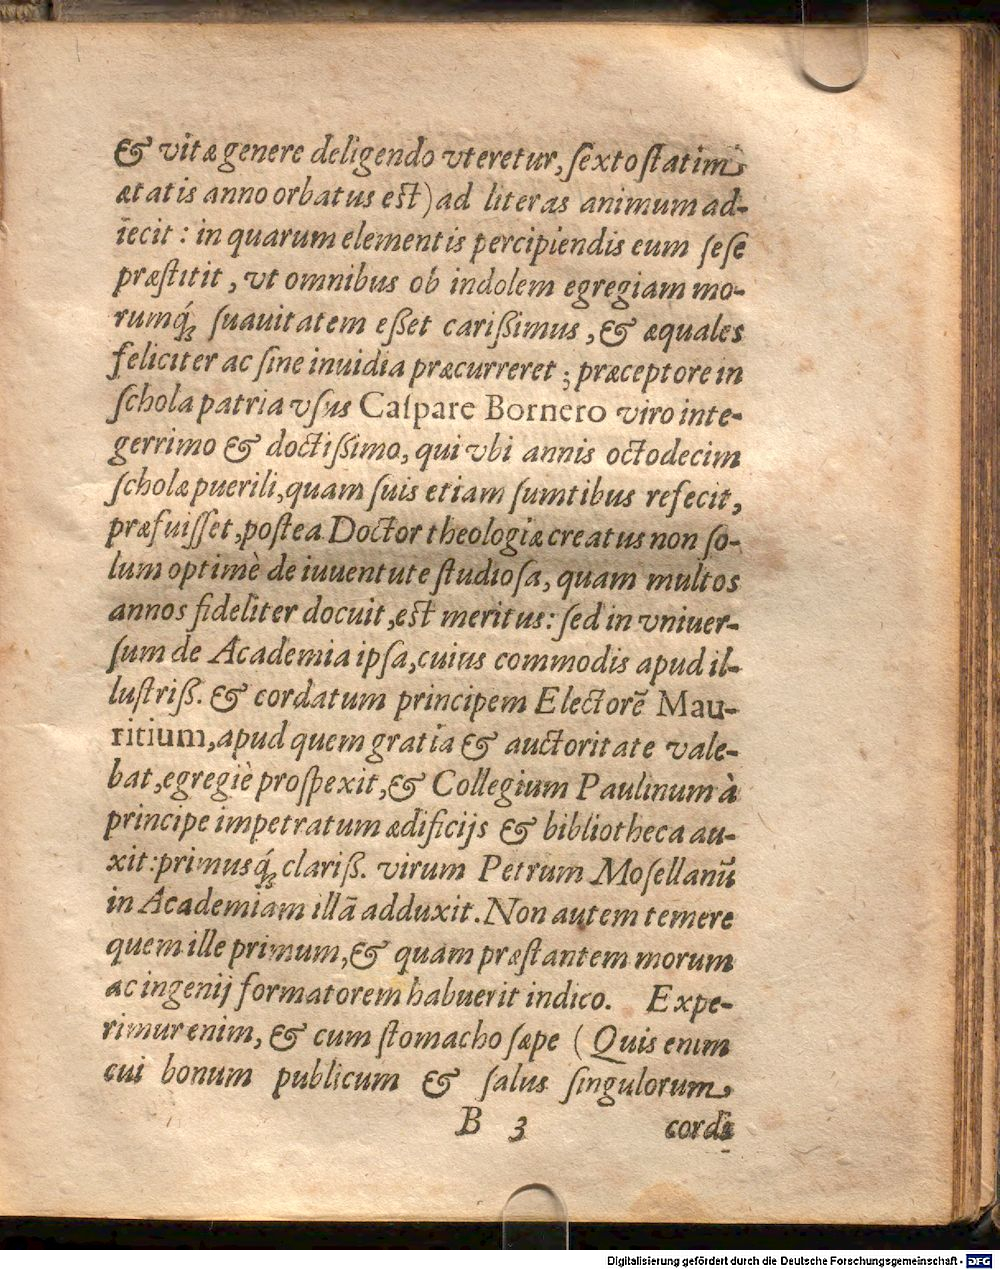 & vitæ genere deligendo vteretur, sexto statim
ætatis anno orbatus est) ad literas animum ad-
iecit: in quarum elementis percipiendis eum sese
præstitit, vt omnibus ob indolem egregiam mo-
rumq́; suauitatem eßet carißimus, & æquales
feliciter ac sine inuidia præcurreret; præceptore in
schola patria vsus Caspare Bornero viro inte-
gerrimo & doctißimo, qui vbi annis octodecim
scholæ puerili, quam suis etiam sumtibus refecit,
præfuisset, postea Doctor theologiæ creatus non so-
lum optimè de iuuentute studiosa, quam multos
annos fideliter docuit, est meritus: sed in vniuer-
sum de Academia ipsa, cuius commodis apud il-
lustriß. & cordatum principem Electorē Mau-
ritium, apud quem gratia & auctoritate vale-
bat, egregiè prospexit, & Collegium Paulinum à
principe impetratum ædificijs & bibliotheca au-
xit: primusq́; clariß. virum Petrum Mosellanū
in Academiam illā adduxit. Non autem temere
quem ille primum, & quam præstantem morum
ac ingenij formatorem habuerit indico. Expe-
rimur enim, & cum stomacho sæpe (Quis enim
cui bonum publicum & salus singulorum
B 3 cordi
Digitalisierung gefördert durch die Deutsche Forschungsgemeinschaft - DFG